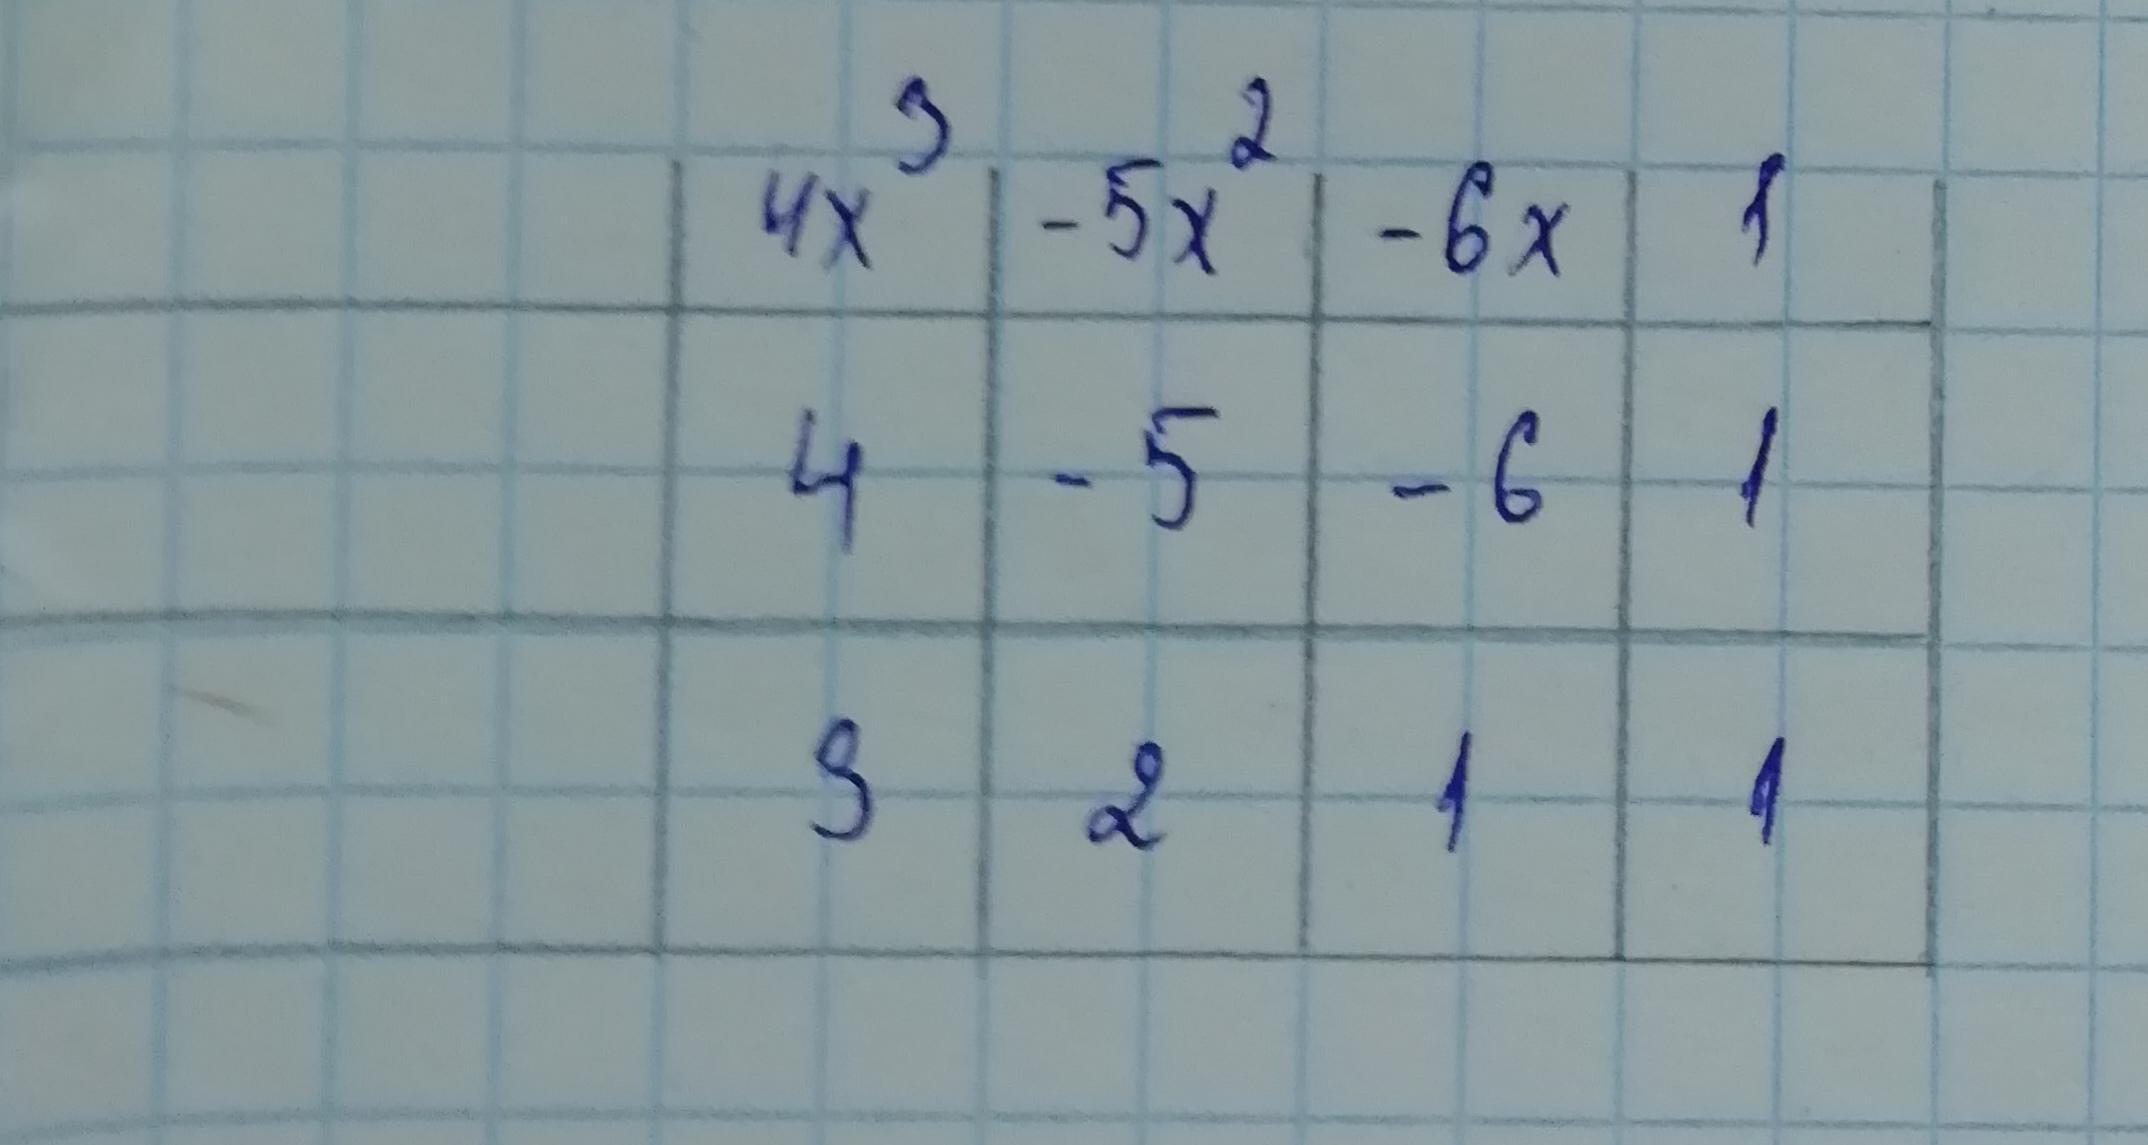 4x³ -5x² -6x 1
4 -5 -6 1
3 2 1 1